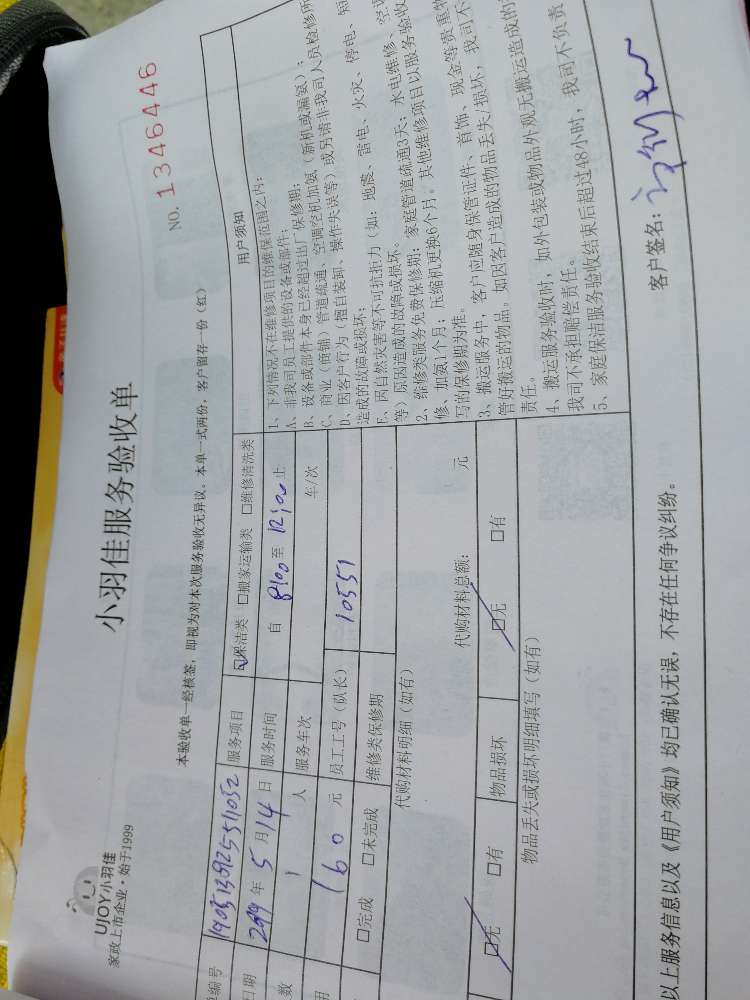 UJOY小羽佳
家政上市企业·始于1999
小羽佳服务验收单
NO. 1346446
本验收单一经核签，即视为对本次服务验收无异议。本单一式两份，客户留存一份（红）
单编号 190513892551052 服务项目 ☑保洁类 □搬家运输类 □维修清洗类
日期 2019 年 5 月 14 日 服务时间 自 8:00 至 12:00 止
数 1 人 服务车次 车/次
用 160 元 员工工号（队长） 10551
□完成 □未完成 维修类保修期
代购材料明细（如有）
代购材料总额： 元
☑无 □有 物品损坏 ☑无 □有
物品丢失或损坏明细填写（如有）
用户须知
1、下列情况不在维修项目的维保范围之内：
A、非我司员工提供的设备或部件；
B、设备或部件本身已经超过出厂保修期；
C、商业（商铺）管道疏通、空调空机加氨（新机或漏氨）；
D、因客户行为（擅自装卸、操作失误等）或另请非我司人员检修所
造成的故障或损坏；
E、因自然灾害等不可抗拒力（如：地震、雷电、火灾、停电、短
等）原因造成的故障或损坏。
2、维修类服务免费保修期：家庭管道疏通3天；水电维修、空
修、加氨1个月；压缩机更换6个月。其他维修项目以服务验收
写的保修期为准。
3、搬运服务中，客户应随身保管证件、首饰、现金等贵重物
管好搬运的物品。如因客户造成的物品丢失/损坏，我司不
责任。
4、搬运服务验收时，如外包装或物品外观无搬运造成的
我司不承担赔偿责任。
5、家庭保洁服务验收结束后超过48小时，我司不负责
以上服务信息以及《用户须知》均已确认无误，不存在任何争议纠纷。
客户签名：